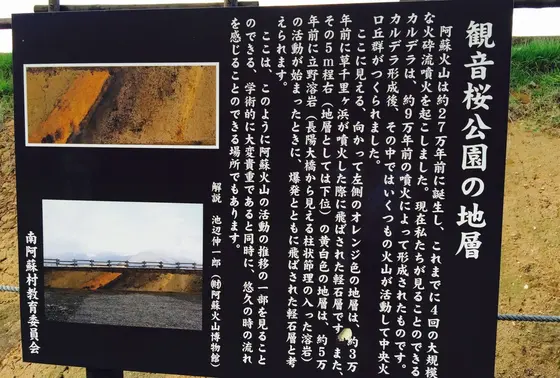 観音桜公園の地層
阿蘇火山は約27万年前に誕生し、これまでに4回の大規模
な火砕流噴火を起こしました。現在私たちが見ることのできる
カルデラは、約9万年前の噴火によって形成されたものです。
カルデラ形成後、その中ではいくつもの火山が活動して中央火
口丘群がつくられました。
ここに見える、向かって左側のオレンジ色の地層は、約3万
年前に草千里ヶ浜が噴火した際に飛ばされた軽石層です。また、
その5m程右(地層としては下位)の黄白色の地層は、約5万
年前に立野溶岩(長陽大橋から見える柱状節理の入った溶岩)
の活動が始まったときに、爆発とともに飛ばされた軽石層と考
えられます。
ここは、このように阿蘇火山の活動の推移の一部を見ること
のできる、学術的に大変貴重であると同時に、悠久の時の流れ
を感じることのできる場所でもあります。
解説 池辺伸一郎(㈶阿蘇火山博物館)
南阿蘇村教育委員会